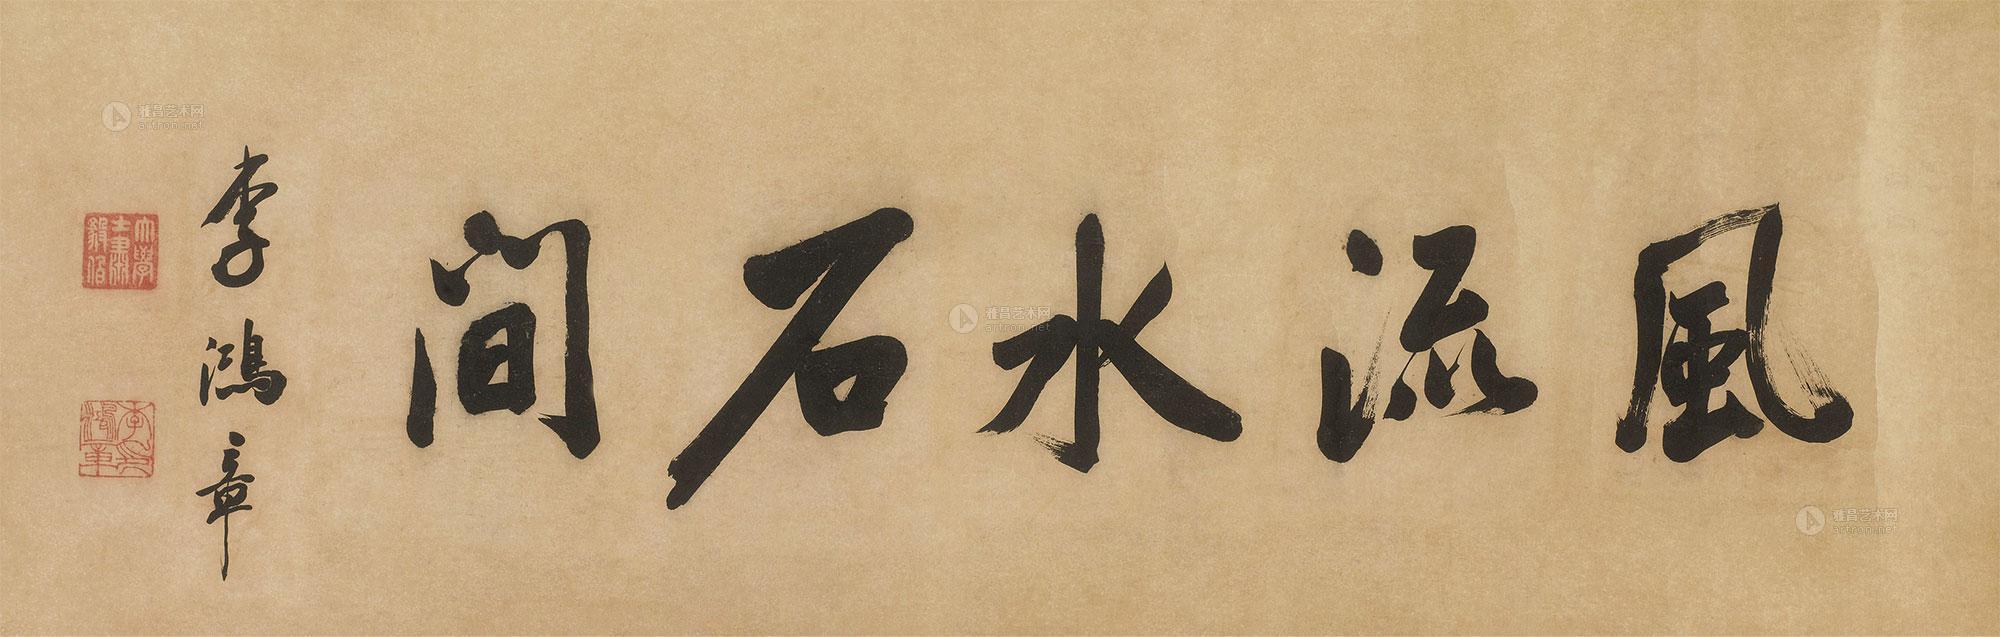 風流水石間
李鴻章
大學士肅毅伯
李鴻章
雅昌艺术网
artron.net
雅昌艺术网
artron.net
雅昌艺术网
artron.net